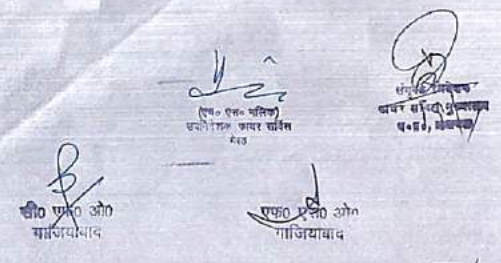 (एम० एस० मलिक)
उपनिदेशक फायर सर्विस
मेरठ
संयुक्त निदेशक
फायर सर्विस मुख्यालय
उ०प्र०, लखनऊ
सी० एफ० ओ०
गाजियाबाद
एफ० एस० ओ०
गाजियाबाद